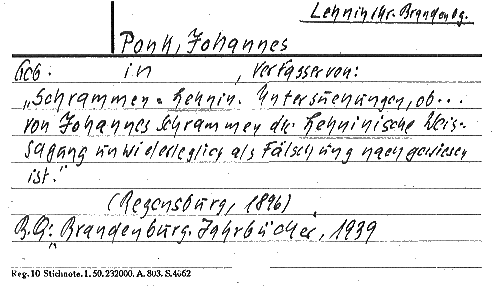 Lehnin Kr. Brandenbg.
Ponk, Johannes
Geb. in , Verfasser von:
„Schrammen - Lehnin. Untersuchungen, ob...
von Johannes Schrammen die Lehninische Weis-
sagung unwiderleglich als Fälschung nachgewiesen
ist."
(Regensburg, 1896)
B.Q: Brandenburg. Jahrbücher, 1939
Reg. 10 Stichnote. 1. 50. 232000. A. 803. S. 4662